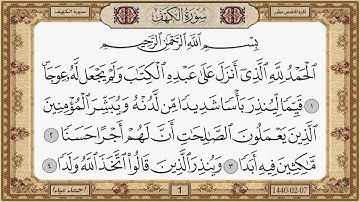 سورة الكهف
بِسْمِ اللَّهِ الرَّحْمَٰنِ الرَّحِيمِ
الْحَمْدُ لِلَّهِ الَّذِي أَنْزَلَ عَلَىٰ عَبْدِهِ الْكِتَٰبَ وَلَمْ يَجْعَلْ لَهُ عِوَجًا ۜ
١ قَيِّمًا لِيُنْذِرَ بَأْسًا شَدِيدًا مِنْ لَدُنْهُ وَيُبَشِّرَ الْمُؤْمِنِينَ
الَّذِينَ يَعْمَلُونَ الصَّٰلِحَٰتِ أَنَّ لَهُمْ أَجْرًا حَسَنًا ٢
مَٰكِثِينَ فِيهِ أَبَدًا ٣ وَيُنْذِرَ الَّذِينَ قَالُوا اتَّخَذَ اللَّهُ وَلَدًا ٤
1
1440-02-07